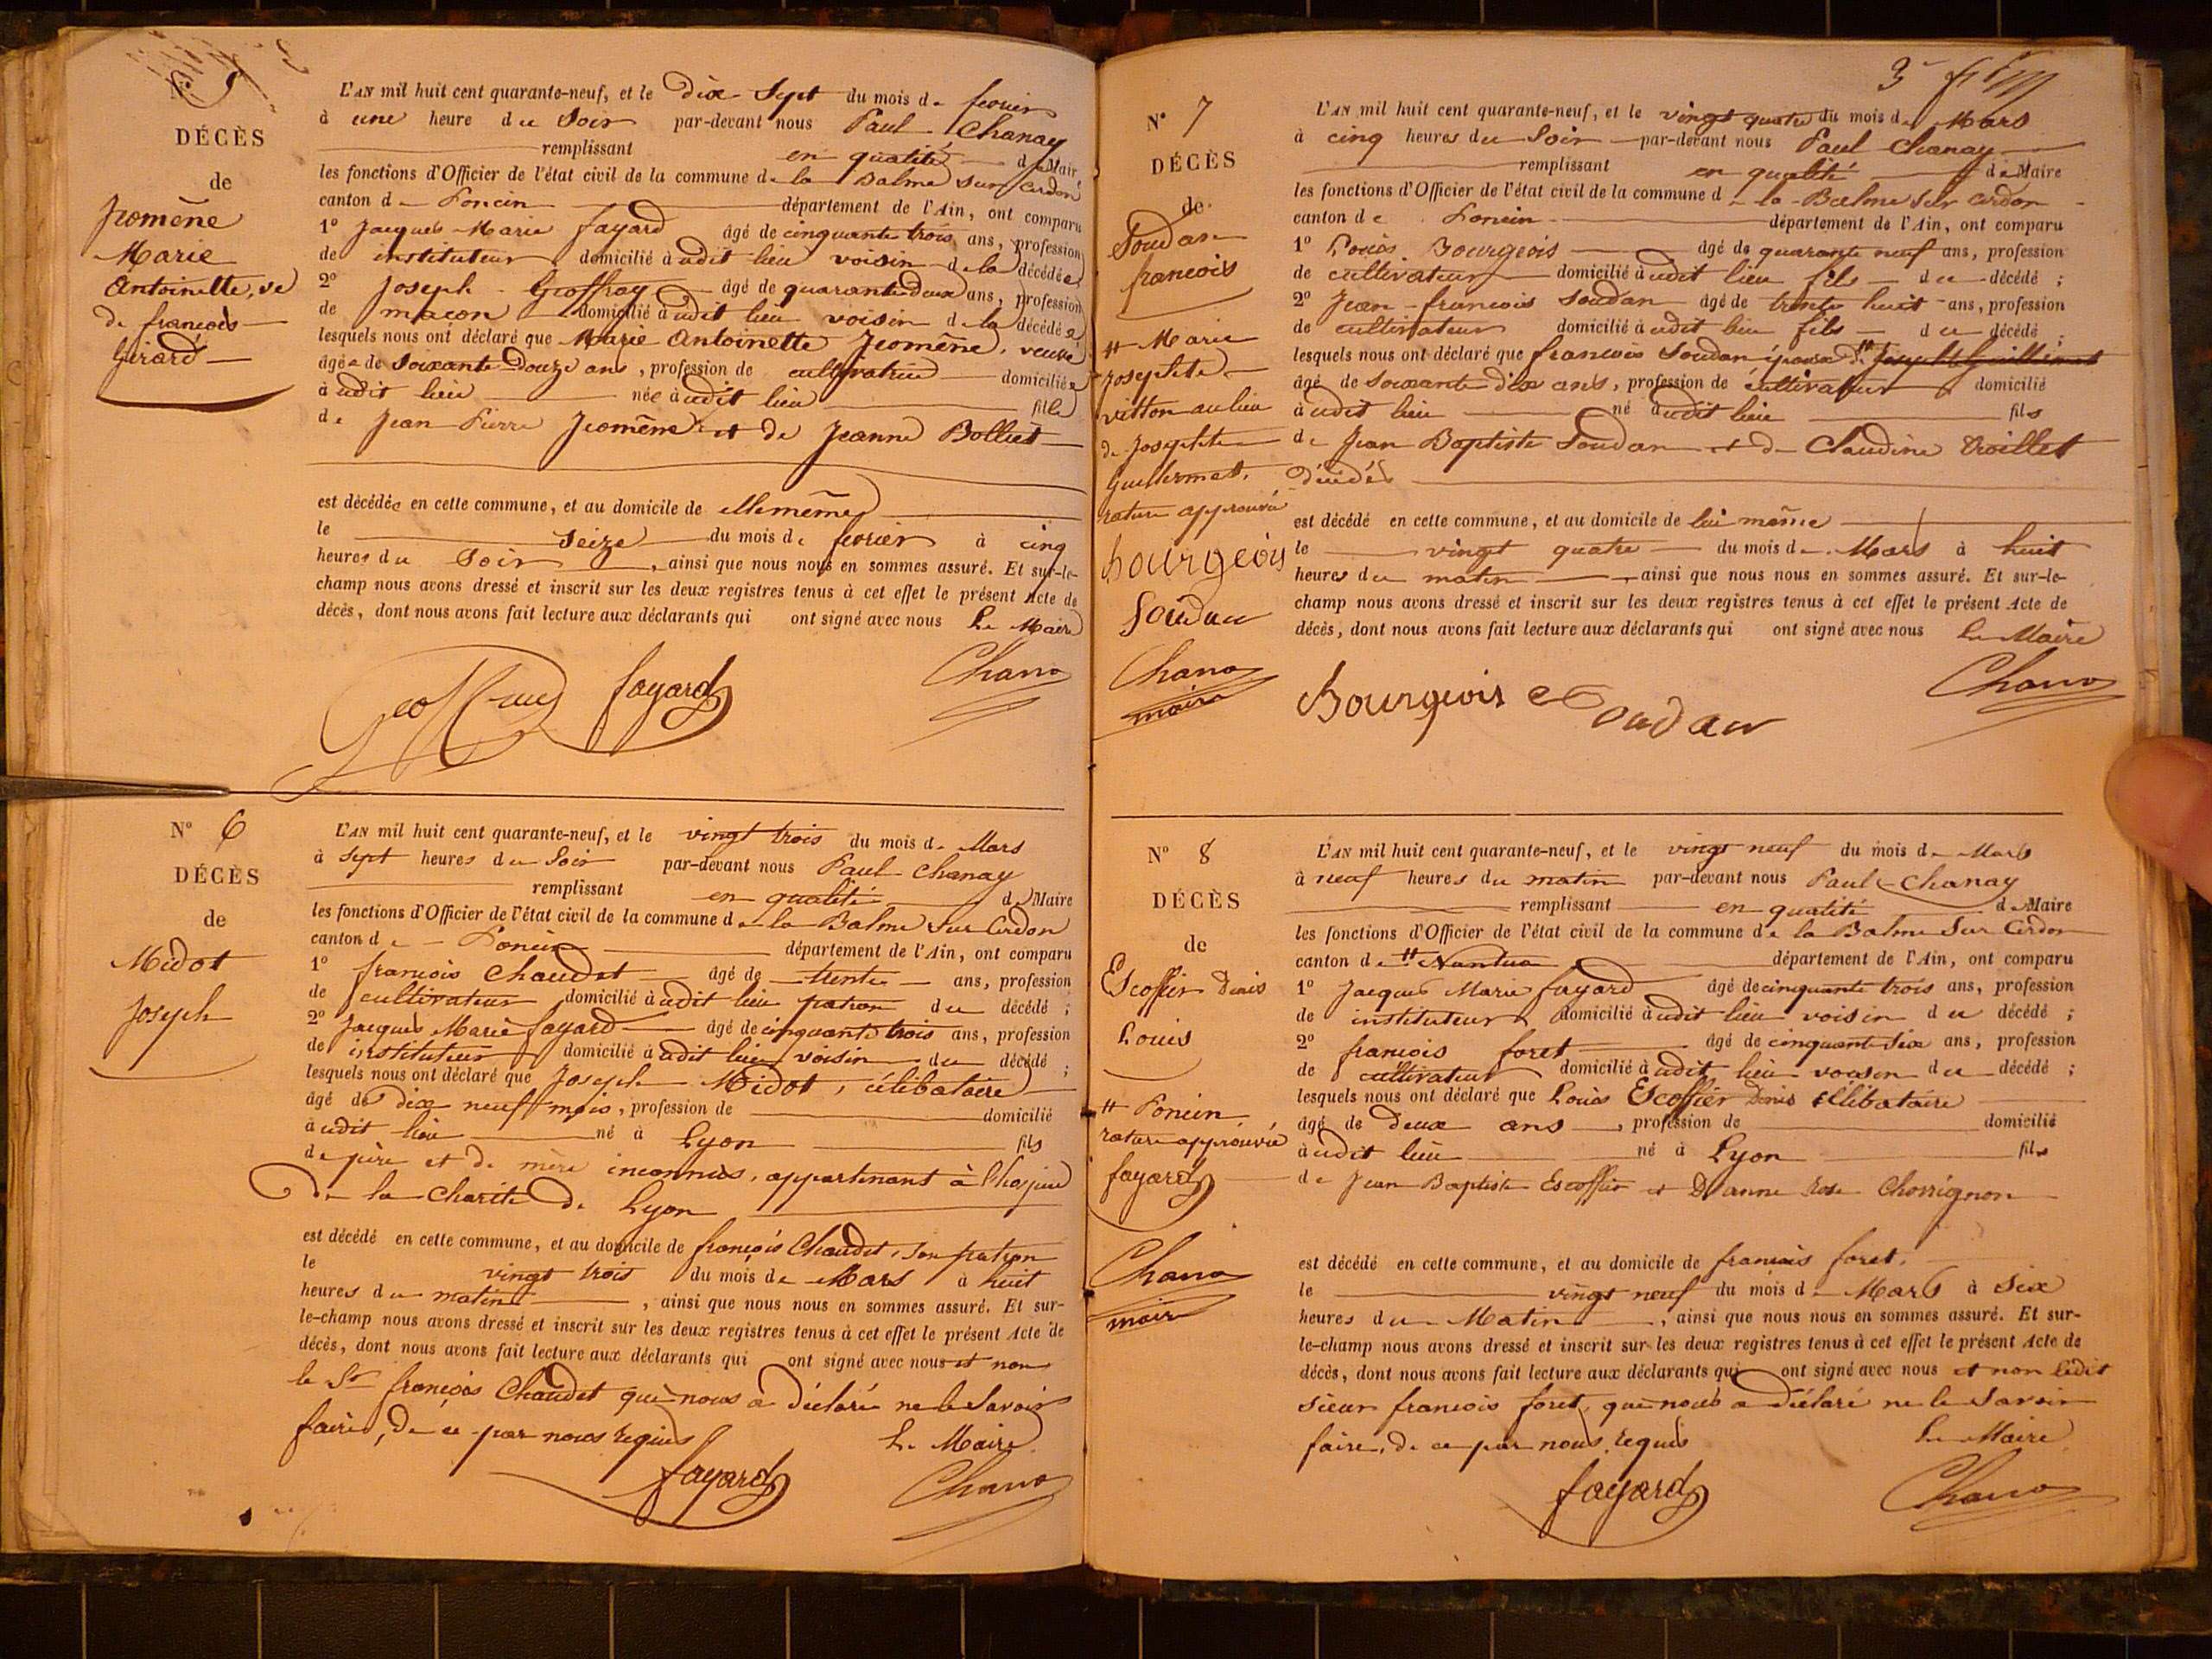 N° 5
DÉCÈS
de
Jromène
Marie
Antoinette, ve
de françois
Girard
L'AN mil huit cent quarante-neuf, et le dix Sept du mois de fevrier
à une heure du Soir par-devant nous Paul Chanay
remplissant en qualité de Maire
les fonctions d'Officier de l'état civil de la commune de la Balme sur Cerdon
canton de Poncin département de l'Ain, ont comparu
1° Jacques Marie fayard âgé de cinquante trois ans, profession
de instituteur domicilié à udit lieu voisin de la décédée
2° Joseph Geoffray âgé de quarante Deux ans, profession
de maçon domicilié à udit lieu voisin de la décédée
lesquels nous ont déclaré que Marie Antoinette Jromène, veuve
âgée de soixante Douze ans, profession de cultivatrice domiciliée
à udit lieu née à udit lieu fille
de Jean Pierre Jromène et de Jeanne Bolliet
est décédée en cette commune, et au domicile de ellemême
le Seize du mois de fevrier à cinq
heures du Soir, ainsi que nous nous en sommes assuré. Et sur-le-
champ nous avons dressé et inscrit sur les deux registres tenus à cet effet le présent Acte de
décès, dont nous avons fait lecture aux déclarants qui ont signé avec nous Le Maire
Geoffray fayard Chanay
N° 6
DÉCÈS
de
Midot
Joseph
L'AN mil huit cent quarante-neuf, et le vingt trois du mois de Mars
à Sept heures du Soir par-devant nous Paul Chanay
remplissant en qualité de Maire
les fonctions d'Officier de l'état civil de la commune de la Balme sur Cerdon
canton de Poncin département de l'Ain, ont comparu
1° françois Chaudet âgé de trente ans, profession
de cultivateur domicilié à udit lieu patron du décédé ;
2° Jacques Marie fayard âgé de cinquante trois ans, profession
de instituteur domicilié à udit lieu voisin du décédé ;
lesquels nous ont déclaré que Joseph Midot, célibataire
âgé de dix neuf mois, profession de domicilié
à udit lieu né à Lyon fils
de père et de mère inconnus, appartenant à l'hospice
de la Charité de Lyon
est décédé en cette commune, et au domicile de françois Chaudet, son patron
le vingt trois du mois de Mars à huit
heures du matin, ainsi que nous nous en sommes assuré. Et sur-
le-champ nous avons dressé et inscrit sur les deux registres tenus à cet effet le présent Acte de
décès, dont nous avons fait lecture aux déclarants qui ont signé avec nous et non
le Sr françois Chaudet qui nous a déclaré ne le Savoir
faire, de ce par nous requis
Le Maire
fayard Chanay
3e
N° 7
DÉCÈS
de
Soudan
françois
# Marie
Josephte
vitton au lieu
de Josephte
Guillermet.
rature approuvée
bourgeois
Soudan
Chanay
maire
L'AN mil huit cent quarante-neuf, et le vingt quatre du mois de Mars
à cinq heures du Soir par-devant nous Paul Chanay
remplissant en qualité de Maire
les fonctions d'Officier de l'état civil de la commune de la Balme sur Cerdon
canton de Poncin département de l'Ain, ont comparu
1° Louis Bourgeois âgé de quarante neuf ans, profession
de cultivateur domicilié à udit lieu fils du décédé ;
2° Jean françois Soudan âgé de trente huit ans, profession
de cultivateur domicilié à udit lieu fils du décédé ;
lesquels nous ont déclaré que françois Soudan époux de # Josephte Guillermet
âgé de soixante dix ans, profession de cultivateur domicilié
à udit lieu né à udit lieu fils
de Jean Baptiste Soudan et de Claudine Troillet
décédés
est décédé en cette commune, et au domicile de lui même
le vingt quatre du mois de Mars à huit
heures du matin, ainsi que nous nous en sommes assuré. Et sur-le-
champ nous avons dressé et inscrit sur les deux registres tenus à cet effet le présent Acte de
décès, dont nous avons fait lecture aux déclarants qui ont signé avec nous Le Maire
Bourgeois Soudan Chanay
N° 8
DÉCÈS
de
Escoffier Denis
Louis
# Poncin
rature approuvée
fayard
Chanay
maire
L'AN mil huit cent quarante-neuf, et le vingt neuf du mois de Mars
à neuf heures du matin par-devant nous Paul Chanay
remplissant en qualité de Maire
les fonctions d'Officier de l'état civil de la commune de la Balme Sur Cerdon
canton de # Nantua département de l'Ain, ont comparu
1° Jacques Marie fayard âgé de cinquante trois ans, profession
de instituteur domicilié à udit lieu voisin du décédé ;
2° françois foret âgé de cinquante Six ans, profession
de cultivateur domicilié à udit lieu voisin du décédé ;
lesquels nous ont déclaré que Louis Escoffier Denis Célibataire
âgé de Deux ans, profession de domicilié
à udit lieu né à Lyon fils
de Jean Baptiste Escoffier et D'anne Rose Chorrignon
est décédé en cette commune, et au domicile de françois foret.
le vingt neuf du mois de Mars à Six
heures du Matin, ainsi que nous nous en sommes assuré. Et sur-
le-champ nous avons dressé et inscrit sur les deux registres tenus à cet effet le présent Acte de
décès, dont nous avons fait lecture aux déclarants qui ont signé avec nous et non ledit
sieur françois foret, qui nous a déclaré ne le Savoir
faire, de ce par nous requis
Le Maire
fayard Chanay